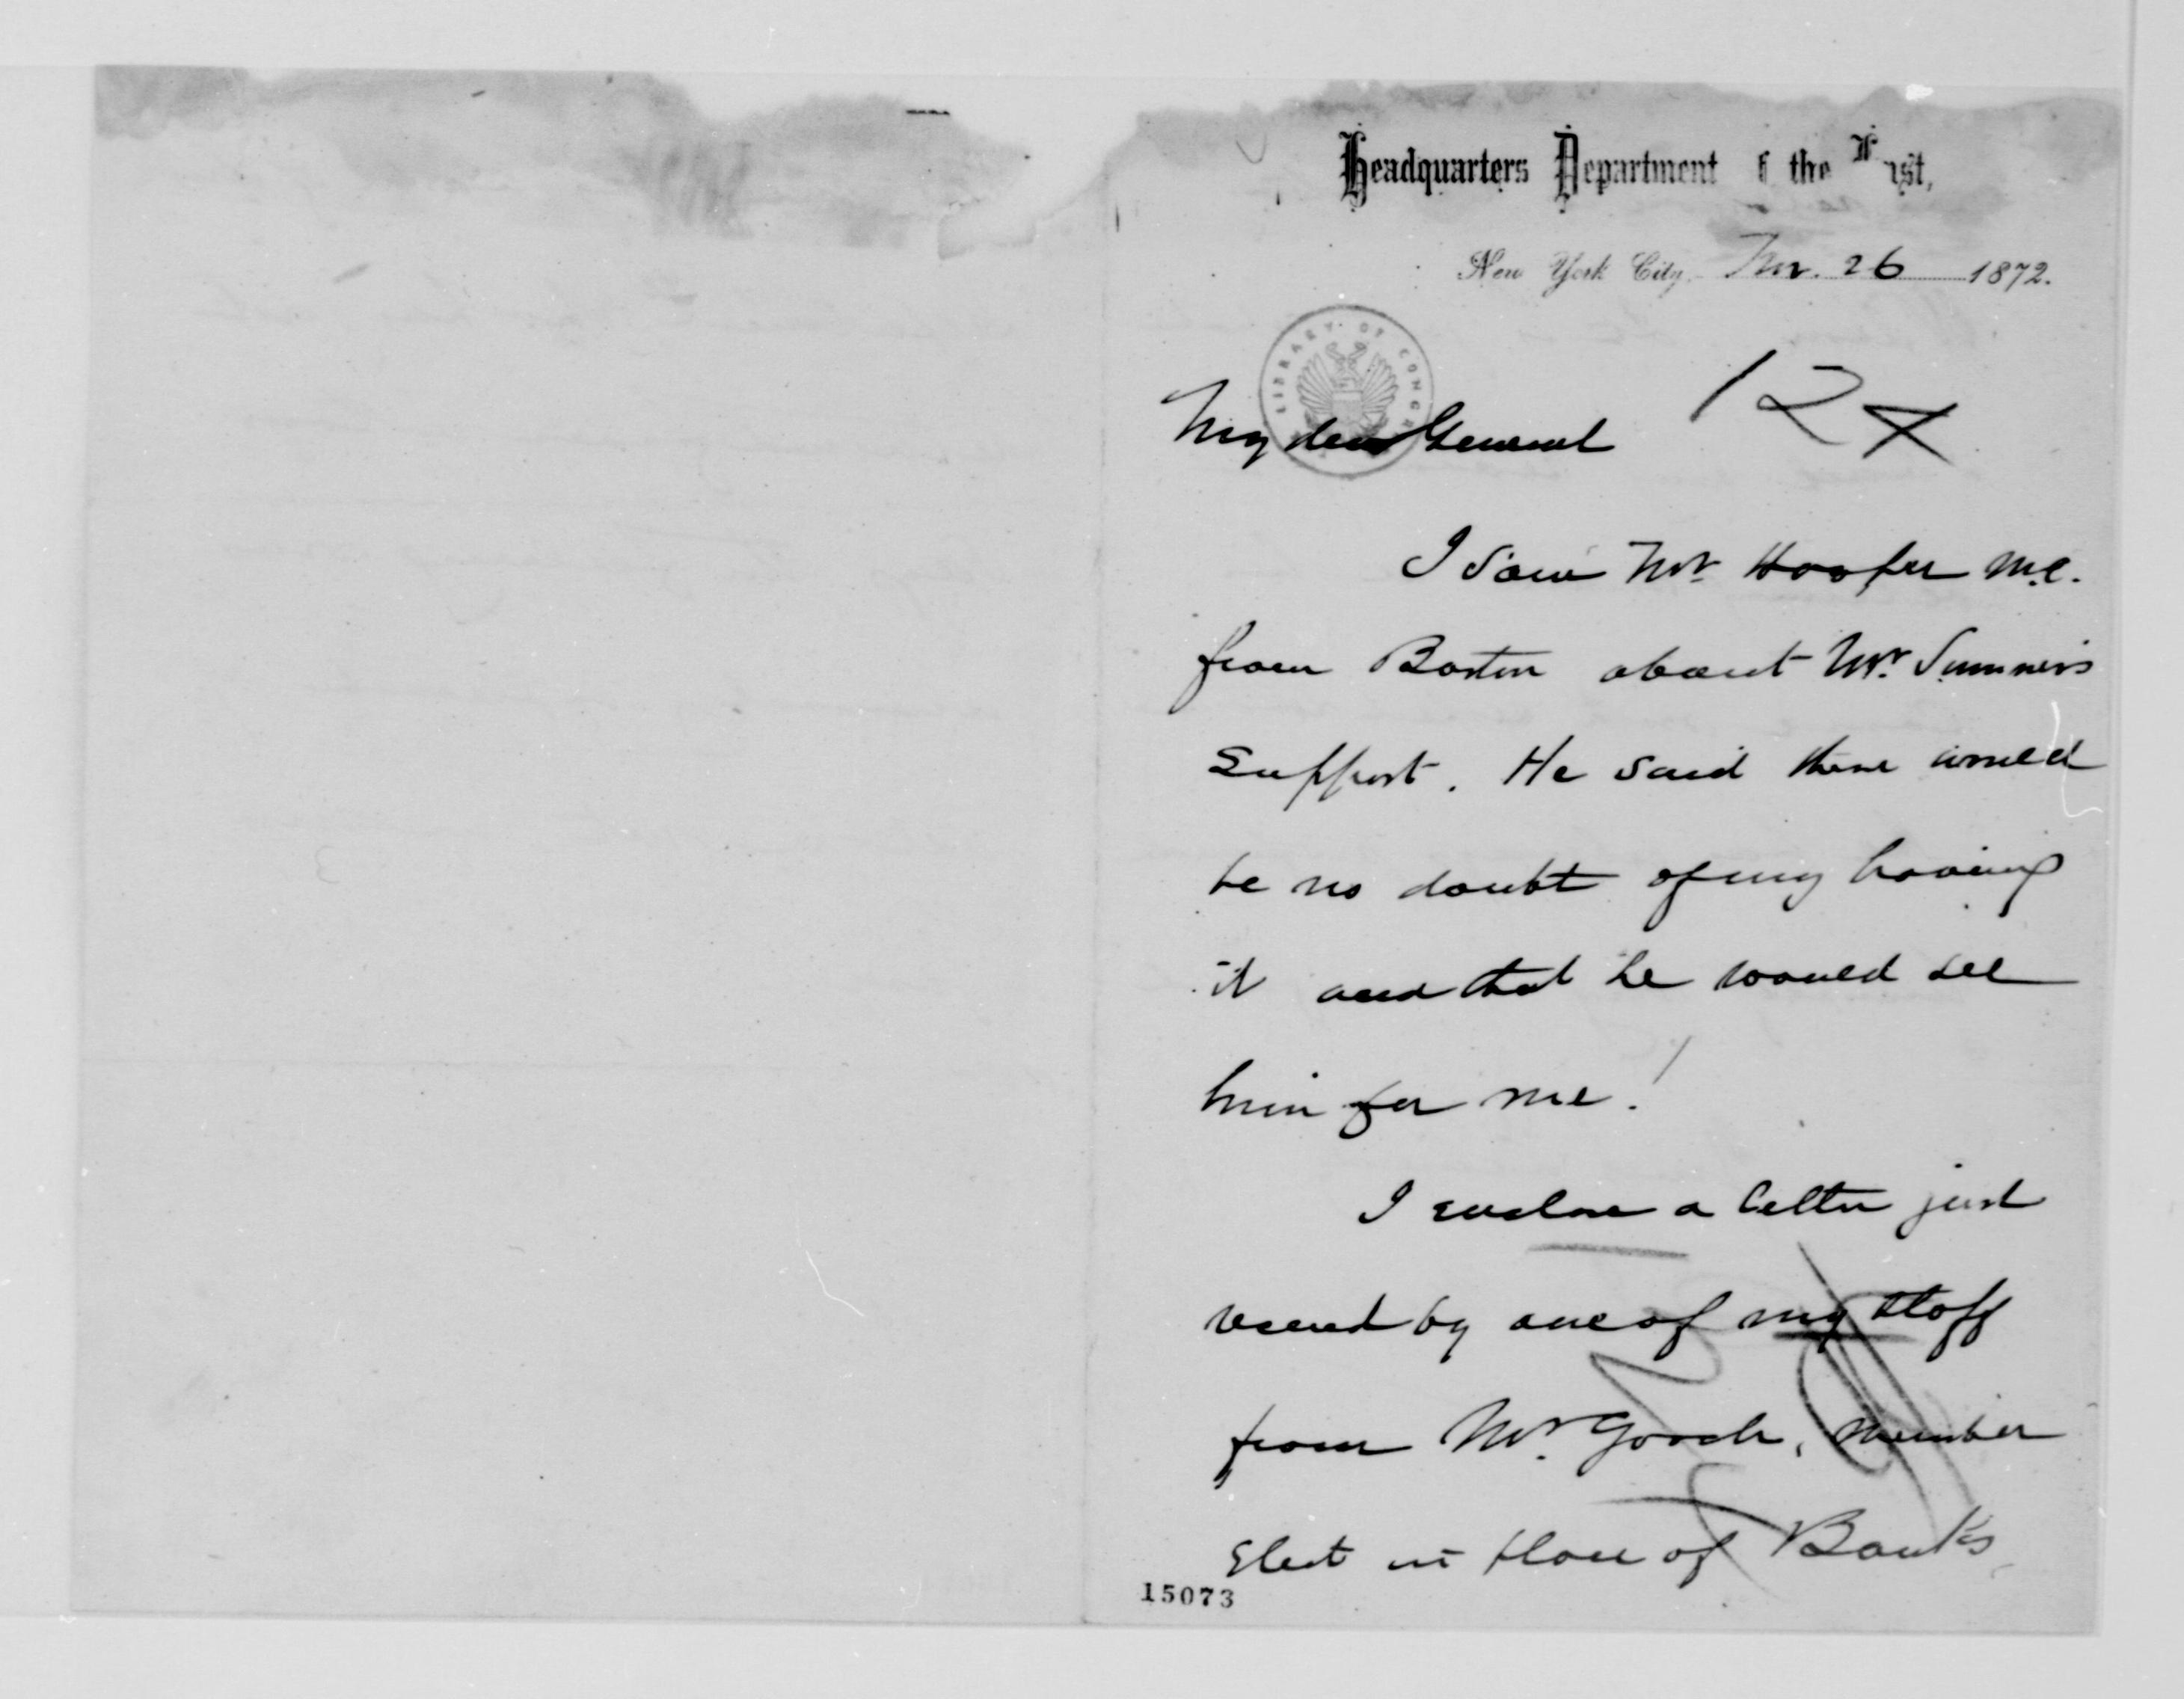 Headquarters Department of the East,
New York City, Nov. 26 1872.
LIBRARY OF CONGR
124
My dear General
I saw Mr Hooper M.C.
from Boston about Mr. Sumner's
support. He said there would
be no doubt of my having
it and that he would see
him for me!
I enclose a letter just
received by one of my staff
from Mr. Gooch, member
elect in place of Banks
15073